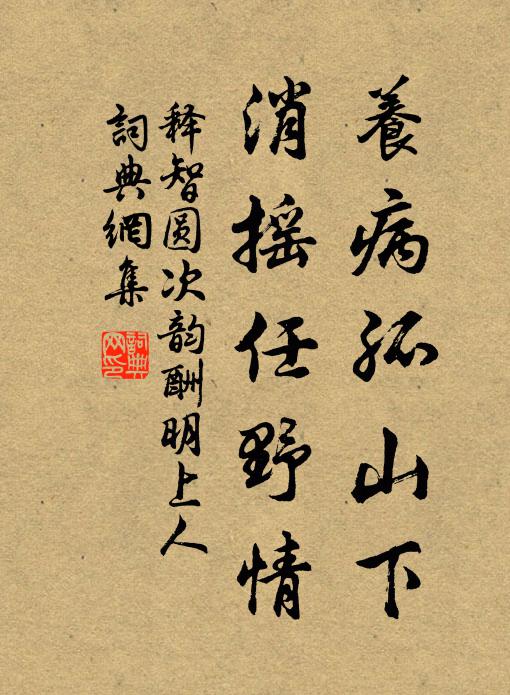 養病孤山下
消摇任野情
释智圆次韵酬明上人
詞典網集
詞典
网印